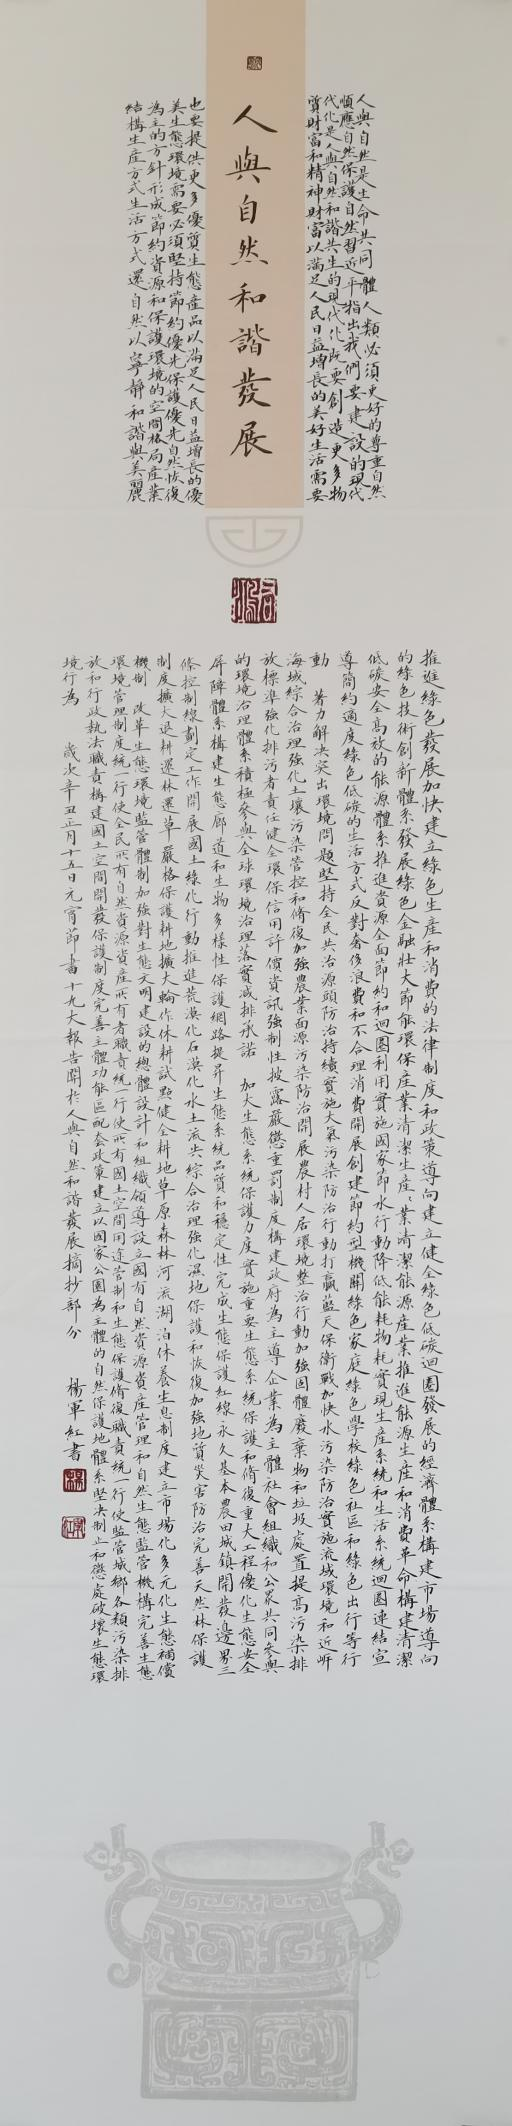 人與自然和諧發展
人與自然是生命共同體人類必須更好的尊重自然
順應自然保護自然習近平指出我們要建設的現代
代化是人與自然和諧共生的現代化既要創造更多物
質財富和精神財富以滿足人民日益增長的美好生活需要
也要提供更多優質生態產品以滿足人民日益增長的優
美生態環境需要必須堅持節約優先保護優先自然恢復
為主的方針形成節約資源和保護環境的空間格局產業
結構生產方式生活方式還自然以寧靜和諧與美麗
推進綠色發展加快建立綠色生產和消費的法律制度和政策導向建立健全綠色低碳迴圈發展的經濟體系構建市場導向
的綠色技術創新體系發展綠色金融壯大節能環保產業清潔生產產業清潔能源產業推進能源生產和消費革命構建清潔
低碳安全高效的能源體系推進資源全面節約和迴圈利用實施國家節水行動降低能耗物耗實現生產系統和生活系統迴圈連結宣
導簡約適度綠色低碳的生活方式反對奢侈浪費和不合理消費開展創建節約型機關綠色家庭綠色學校綠色社區和綠色出行等行
動 著力解決突出環境問題堅持全民共治源頭防治持續實施大氣污染防治行動打贏藍天保衛戰加快水污染防治實施流域環境和近岸
海域綜合治理強化土壤污染管控和脩復加強農業面源污染防治開展農村人居環境整治行動加強固體廢棄物和垃圾處置提高污染排
放標準強化排污者責任健全環保信用評價資訊強制性披露嚴懲重罰制度構建政府為主導企業為主體社會組織和公眾共同參與
的環境治理體系積極參與全球環境治理落實減排承諾 加大生態系統保護力度實施重要生態系統保護和脩復重大工程優化生態安全
屏障體系構建生態廊道和生物多樣性保護網路提昇生態系統品質和穩定性完成生態保護紅線永久基本農田城鎮開發邊界三
條控制線劃定工作開展國土綠化行動推進荒漠化石漠化水土流失綜合治理強化濕地保護和恢復加強地質災害防治完善天然林保護
制度擴大退耕還林還草嚴格保護耕地擴大輪作休耕試點健全耕地草原森林河流湖泊休養生息制度建立市場化多元化生態補償
機制 改革生態環境監管體制加強對生態文明建設的總體設計和組織領導設立國有自然資源資產管理和自然生態監管機構完善生態
環境管理制度統一行使全民所有自然資源資產所有者職責統一行使所有國土空間用途管制和生態保護脩復職責統一行使監管城鄉各類污染排
放和行政執法職責構建國土空間開發保護制度完善主體功能區配套政策建立以國家公園為主體的自然保護地體系堅决制止和懲處破壞生態環
境行為 歲次辛丑正月十五日元宵節書十九大報告關於人與自然和諧發展摘抄部分 楊軍紅書